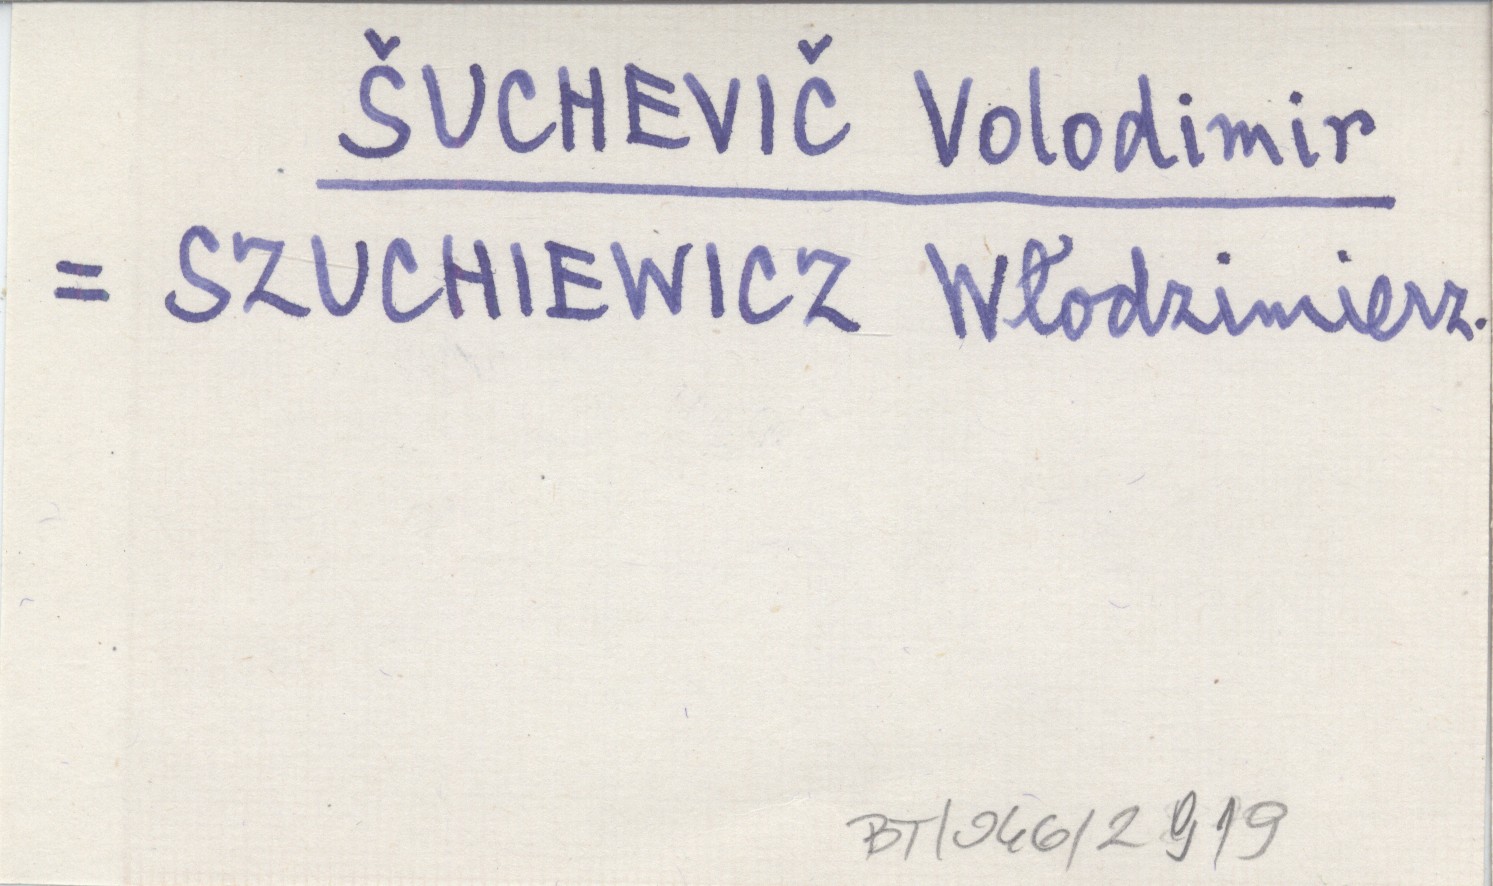 ŠUCHEVIČ Volodimir
= SZUCHIEWICZ Włodzimierz.